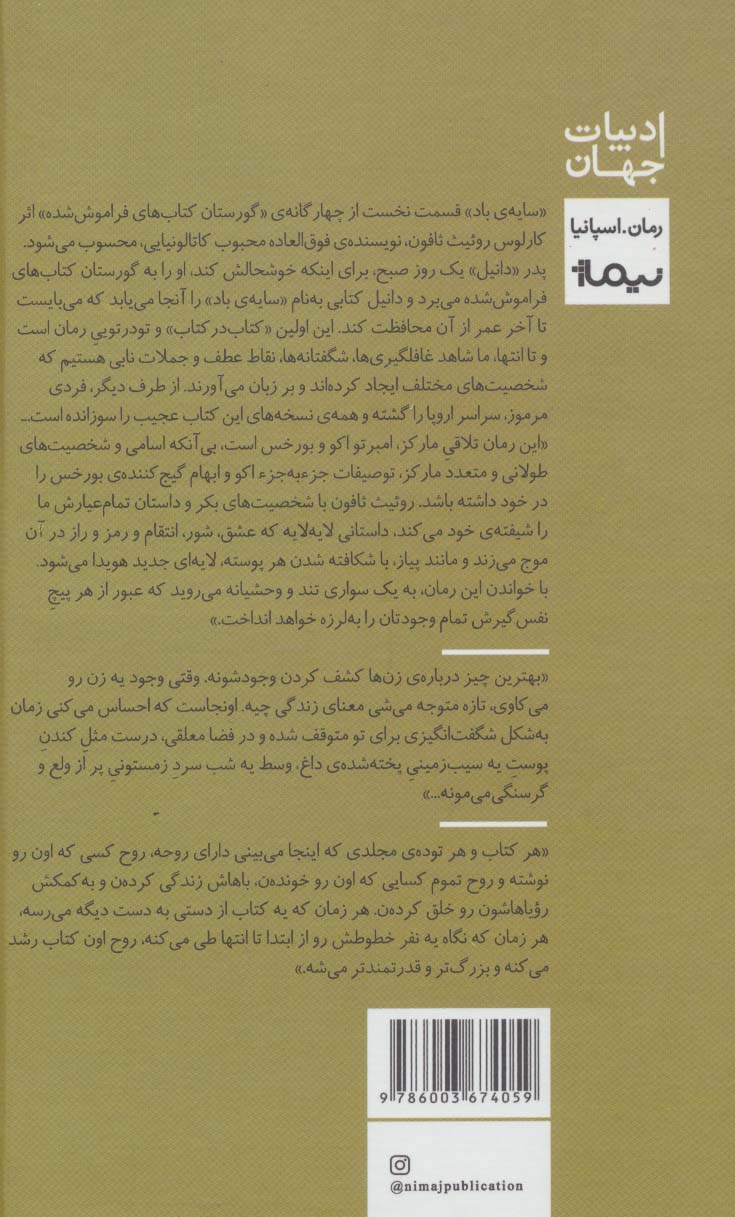 ادبیات
جهان
رمان.اسپانیا
نیماژ
«سایه‌ی باد» قسمت نخست از چهارگانه‌ی «گورستان کتاب‌های فراموش‌شده» اثر
کارلوس روئیث ثافون، نویسنده‌ی فوق‌العاده محبوب کاتالونیایی، محسوب می‌شود.
پدر «دانیل» یک روز صبح، برای اینکه خوشحالش کند، او را به گورستان کتاب‌های
فراموش‌شده می‌برد و دانیل کتابی به‌نام «سایه‌ی باد» را آنجا می‌یابد که می‌بایست
تا آخر عمر از آن محافظت کند. این اولین «کتاب‌درکتاب» و تودرتوییِ رمان است
و تا انتها، ما شاهد غافلگیری‌ها، شگفتانه‌ها، نقاط عطف و جملات نابی هستیم که
شخصیت‌های مختلف ایجاد کرده‌اند و بر زبان می‌آورند. از طرف دیگر، فردی
مرموز، سراسر اروپا را گشته و همه‌ی نسخه‌های این کتاب عجیب را سوزانده است...
«این رمان تلاقیِ مارکز، امبرتو اکو و بورخس است، بی‌آنکه اسامی و شخصیت‌های
طولانی و متعدد مارکز، توصیفات جزءبه‌جزء اکو و ابهام گیج‌کننده‌ی بورخس را
در خود داشته باشد. روئیث ثافون با شخصیت‌های بکر و داستان تمام‌عیارش ما
را شیفته‌ی خود می‌کند، داستانی لایه‌لایه که عشق، شور، انتقام و رمز و راز در آن
موج می‌زند و مانند پیاز، با شکافته شدن هر پوسته، لایه‌ای جدید هویدا می‌شود.
با خواندن این رمان، به یک سواری تند و وحشیانه می‌روید که عبور از هر پیچِ
نفس‌گیرش تمام وجودتان را به‌لرزه خواهد انداخت.»
«بهترین چیز درباره‌ی زن‌ها کشف کردن وجودشونه. وقتی وجود یه زن رو
می‌کاوی، تازه متوجه می‌شی معنای زندگی چیه. اونجاست که احساس می‌کنی زمان
به‌شکل شگفت‌انگیزی برای تو متوقف شده و در فضا معلقی، درست مثلِ کندنِ
پوستِ یه سیب‌زمینیِ پخته‌شده‌ی داغ، وسط یه شب سردِ زمستونیِ پر از ولع و
گرسنگی می‌مونه...»
«هر کتاب و هر توده‌ی مجلدی که اینجا می‌بینی دارای روحه، روح کسی که اون رو
نوشته و روح تموم کسایی که اون رو خونده‌ن، باهاش زندگی کرده‌ن و به‌کمکش
رؤیاهاشون رو خلق کرده‌ن. هر زمان که یه کتاب از دستی به دست دیگه می‌رسه،
هر زمان که نگاه یه نفر خطوطش رو از ابتدا تا انتها طی می‌کنه، روح اون کتاب رشد
می‌کنه و بزرگ‌تر و قدرتمندتر می‌شه.»
9 786003 674059
@nimajpublication